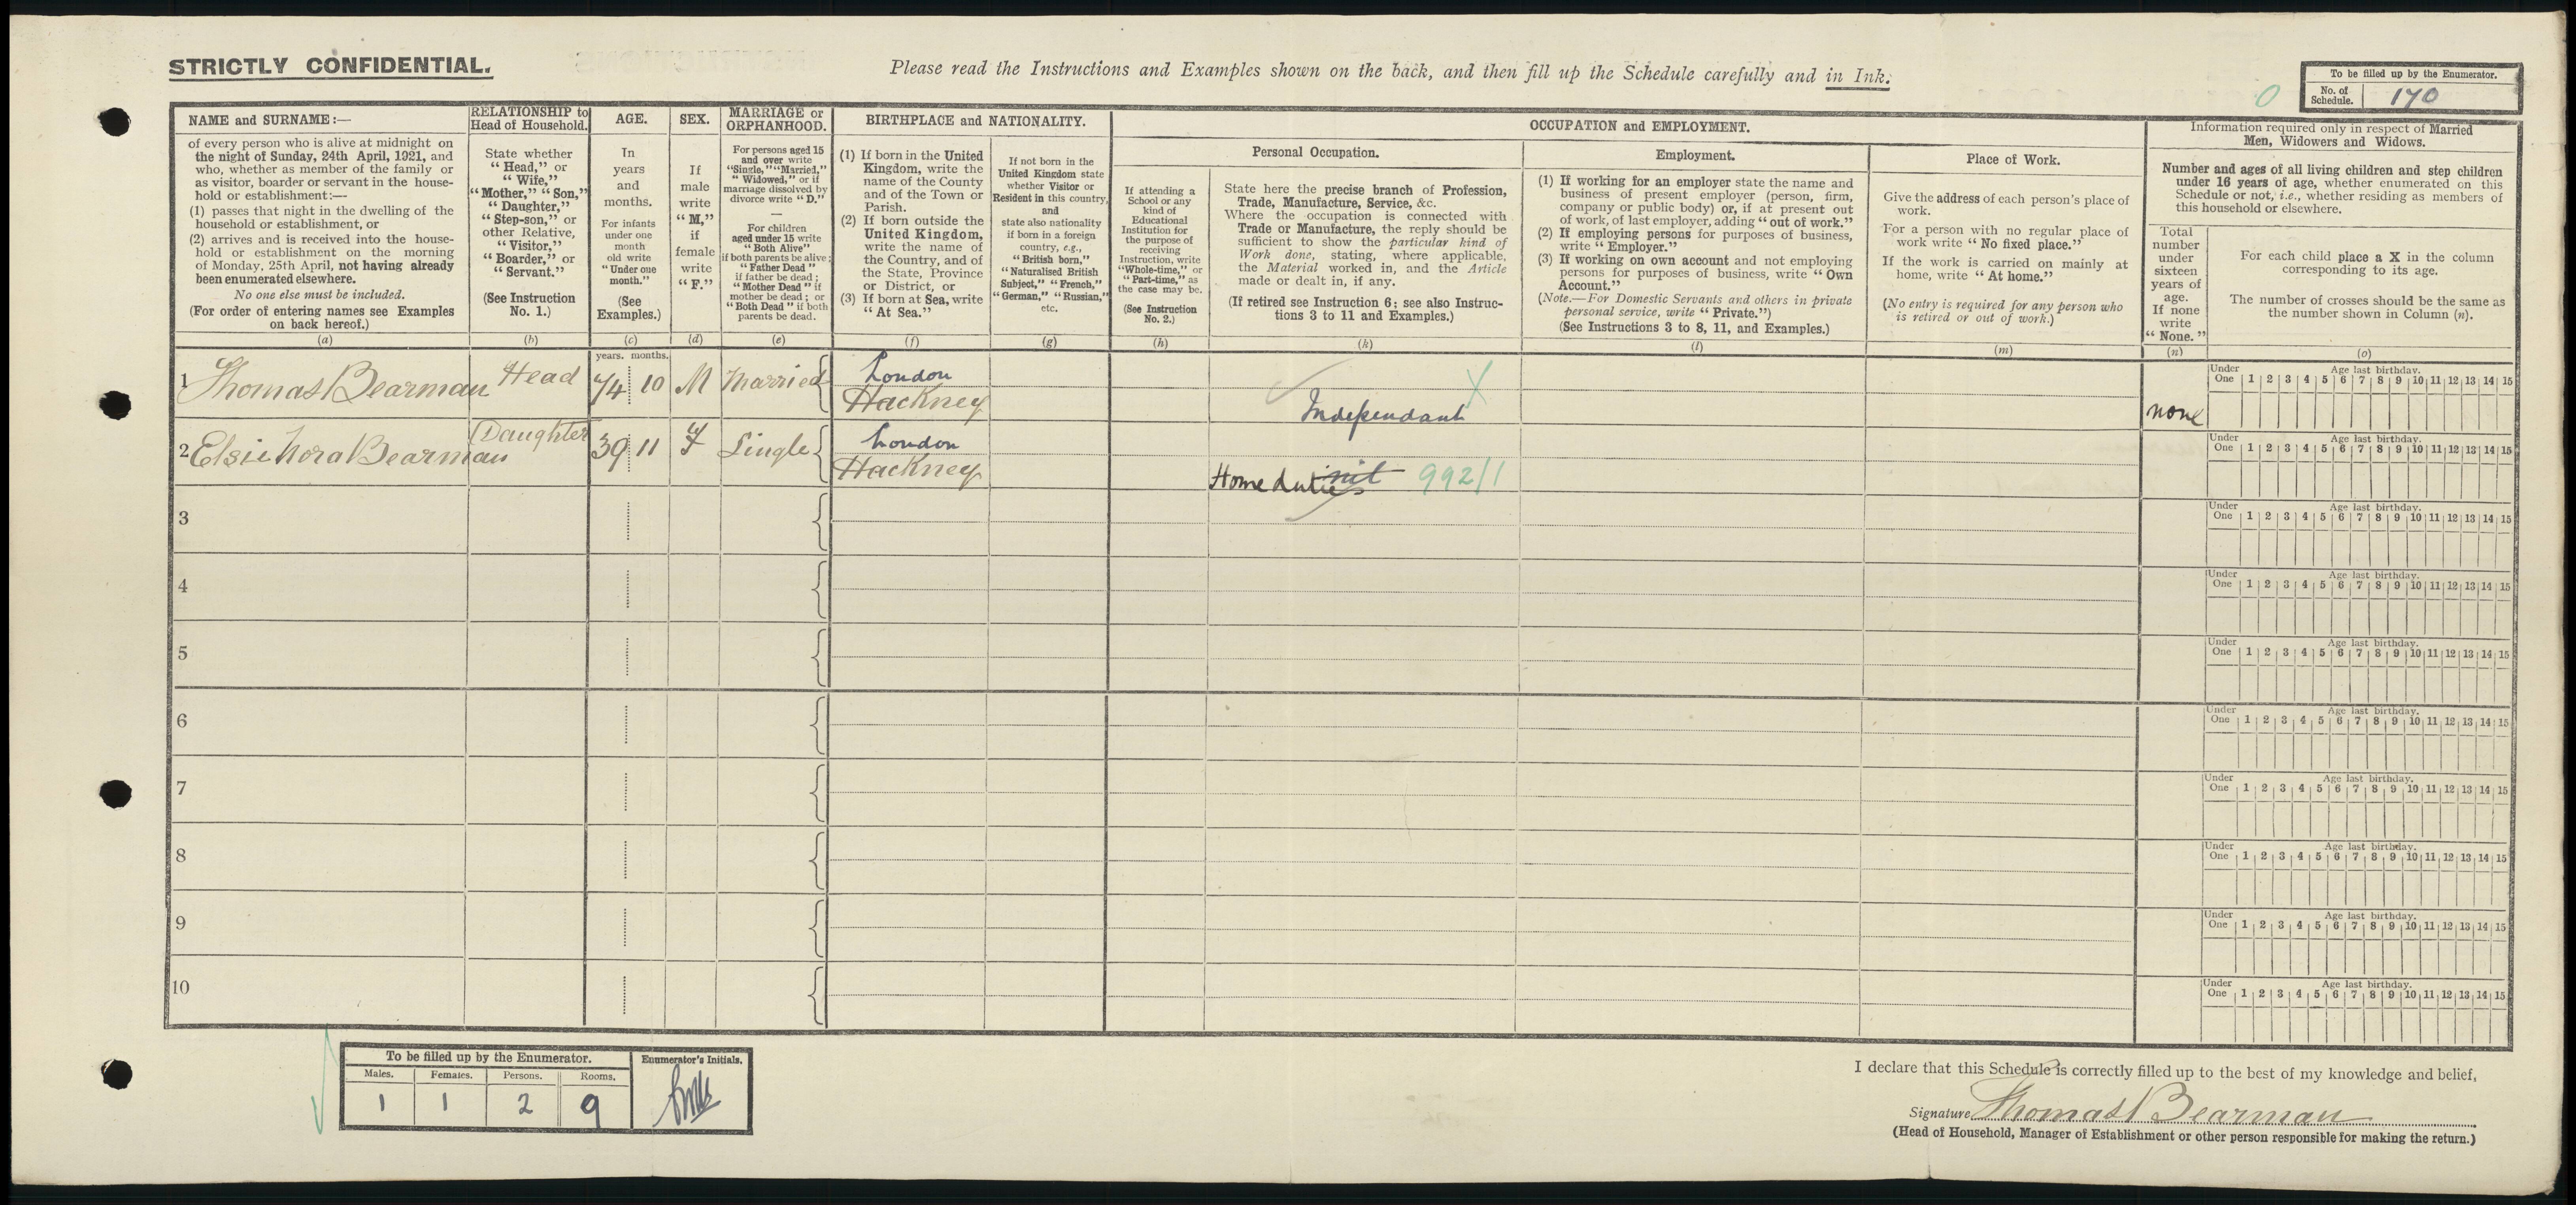 STRICTLY CONFIDENTIAL.
Please read the Instructions and Examples shown on the back, and then fill up the Schedule carefully and in Ink.
To be filled up by the Enumerator.
No. of Schedule.
170
0
NAME and SURNAME:—
of every person who is alive at midnight on
the night of Sunday, 24th April, 1921, and
who, whether as member of the family or
as visitor, boarder or servant in the house-
hold or establishment:—
(1) passes that night in the dwelling of the
household or establishment, or
(2) arrives and is received into the house-
hold or establishment on the morning
of Monday, 25th April, not having already
been enumerated elsewhere.
No one else must be included.
(For order of entering names see Examples
on back hereof.)
(a)
RELATIONSHIP to
Head of Household.
State whether
"Head," or
"Wife,"
"Mother," "Son,"
"Daughter,"
"Step-son," or
other Relative,
"Visitor,"
"Boarder," or
"Servant."
(See Instruction
No. 1.)
(b)
AGE.
In
years
and
months.
For infants
under one
month
old write
"Under one
month."
(See
Examples.)
(c)
SEX.
If
male
write
"M,"
if
female
write
"F."
(d)
MARRIAGE or
ORPHANHOOD.
For persons aged 15
and over write
"Single," "Married,"
"Widowed," or if
marriage dissolved by
divorce write "D."
—
For children
aged under 15 write
"Both Alive"
if both parents be alive;
"Father Dead"
if father be dead;
"Mother Dead" if
mother be dead; or
"Both Dead" if both
parents be dead.
(e)
BIRTHPLACE and NATIONALITY.
(1) If born in the United
Kingdom, write the
name of the County
and of the Town or
Parish.
(2) If born outside the
United Kingdom,
write the name of
the Country, and of
the State, Province
or District, or
(3) If born at Sea, write
"At Sea."
(f)
If not born in the
United Kingdom state
whether Visitor or
Resident in this country,
and
state also nationality
if born in a foreign
country, e.g.,
"British born,"
"Naturalised British
Subject," "French,"
"German," "Russian,"
etc.
(g)
OCCUPATION and EMPLOYMENT.
If attending a
School or any
kind of
Educational
Institution for
the purpose of
receiving
Instruction, write
"Whole-time," or
"Part-time," as
the case may be.
(See Instruction
No. 2.)
(h)
Personal Occupation.
State here the precise branch of Profession,
Trade, Manufacture, Service, &c.
Where the occupation is connected with
Trade or Manufacture, the reply should be
sufficient to show the particular kind of
Work done, stating, where applicable,
the Material worked in, and the Article
made or dealt in, if any.
(If retired see Instruction 6; see also Instruc-
tions 3 to 11 and Examples.)
(k)
Employment.
(1) If working for an employer state the name and
business of present employer (person, firm,
company or public body) or, if at present out
of work, of last employer, adding "out of work."
(2) If employing persons for purposes of business,
write "Employer."
(3) If working on own account and not employing
persons for purposes of business, write "Own
Account."
(Note.—For Domestic Servants and others in private
personal service, write "Private.")
(See Instructions 3 to 8, 11, and Examples.)
(l)
Place of Work.
Give the address of each person's place of
work.
For a person with no regular place of
work write "No fixed place."
If the work is carried on mainly at
home, write "At home."
(No entry is required for any person who
is retired or out of work.)
(m)
Information required only in respect of Married
Men, Widowers and Widows.
Number and ages of all living children and step children
under 16 years of age, whether enumerated on this
Schedule or not, i.e., whether residing as members of
this household or elsewhere.
Total
number
under
sixteen
years of
age.
If none
write
"None."
(n)
For each child place a X in the column
corresponding to its age.
The number of crosses should be the same as
the number shown in Column (n).
(o)
years. months.
1 Thomas Bearman Head 74 10 M Married London Hackney Independant X none
Under One Age last birthday. 1 2 3 4 5 6 7 8 9 10 11 12 13 14 15
2 Elsie Nora Bearman Daughter 39 11 F Single London Hackney Home duties nil 992/1
Under One Age last birthday. 1 2 3 4 5 6 7 8 9 10 11 12 13 14 15
3
Under One Age last birthday. 1 2 3 4 5 6 7 8 9 10 11 12 13 14 15
4
Under One Age last birthday. 1 2 3 4 5 6 7 8 9 10 11 12 13 14 15
5
Under One Age last birthday. 1 2 3 4 5 6 7 8 9 10 11 12 13 14 15
6
Under One Age last birthday. 1 2 3 4 5 6 7 8 9 10 11 12 13 14 15
7
Under One Age last birthday. 1 2 3 4 5 6 7 8 9 10 11 12 13 14 15
8
Under One Age last birthday. 1 2 3 4 5 6 7 8 9 10 11 12 13 14 15
9
Under One Age last birthday. 1 2 3 4 5 6 7 8 9 10 11 12 13 14 15
10
Under One Age last birthday. 1 2 3 4 5 6 7 8 9 10 11 12 13 14 15
To be filled up by the Enumerator.
Enumerator's Initials.
Males. Females. Persons. Rooms.
1 1 2 9
I declare that this Schedule is correctly filled up to the best of my knowledge and belief,
Signature Thomas Bearman
(Head of Household, Manager of Establishment or other person responsible for making the return.)